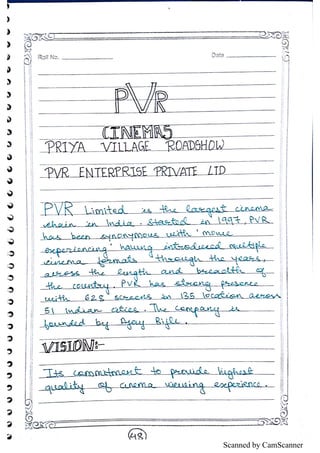 Roll No. Date
PVR
CINEMAS
PRIYA VILLAGE ROADSHOW
PVR ENTERPRISE PRIVATE LTD
PVR Limited is the largest cinema
chain in India. Started in 1997, PVR
has been synonymous with 'movie
experiencing' having introduced multiple
cinema formats through the years,
across the length and breadth of
the country. PVR has strong presence
with 628 screens in 135 location across
51 Indian cities. The company is
bounded by Ajay Bijle.
VISION:-
Its commitment to provide highest
quality of cinema viewing experience.
48
Scanned by CamScanner